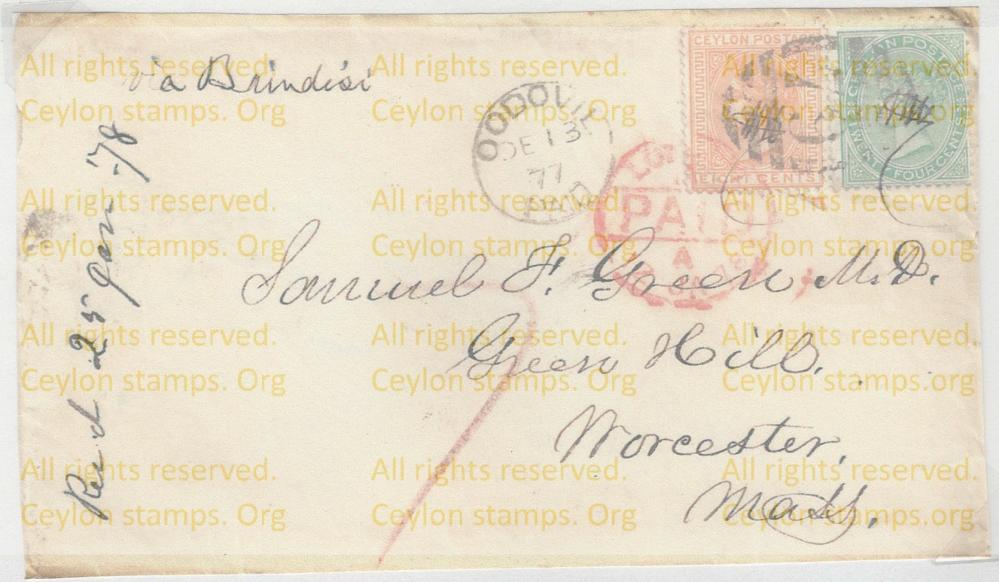 via Brindisi
CEYLON POSTA
EIGHT CENTS
TWENTY FOUR CENTS
OODOOVIL
DE 13
77
PAID
LO
PAID
A
Samuel F. Green M.D.
Green Hill.
Worcester.
Mass.
Rec'd 25 Jan '78
All rights reserved. All rights reserved. All rights reserved.
Ceylon stamps. Org Ceylon stamps. Org Ceylon stamps. Org
All rights reserved. All rights reserved. All rights reserved.
Ceylon stamps. Org Ceylon stamps. Org Ceylon stamps. Org
All rights reserved. All rights reserved. All rights reserved.
Ceylon stamps. Org Ceylon stamps. Org Ceylon stamps. Org
All rights reserved. All rights reserved. All rights reserved.
Ceylon stamps. Org Ceylon stamps. Org Ceylon stamps. Org